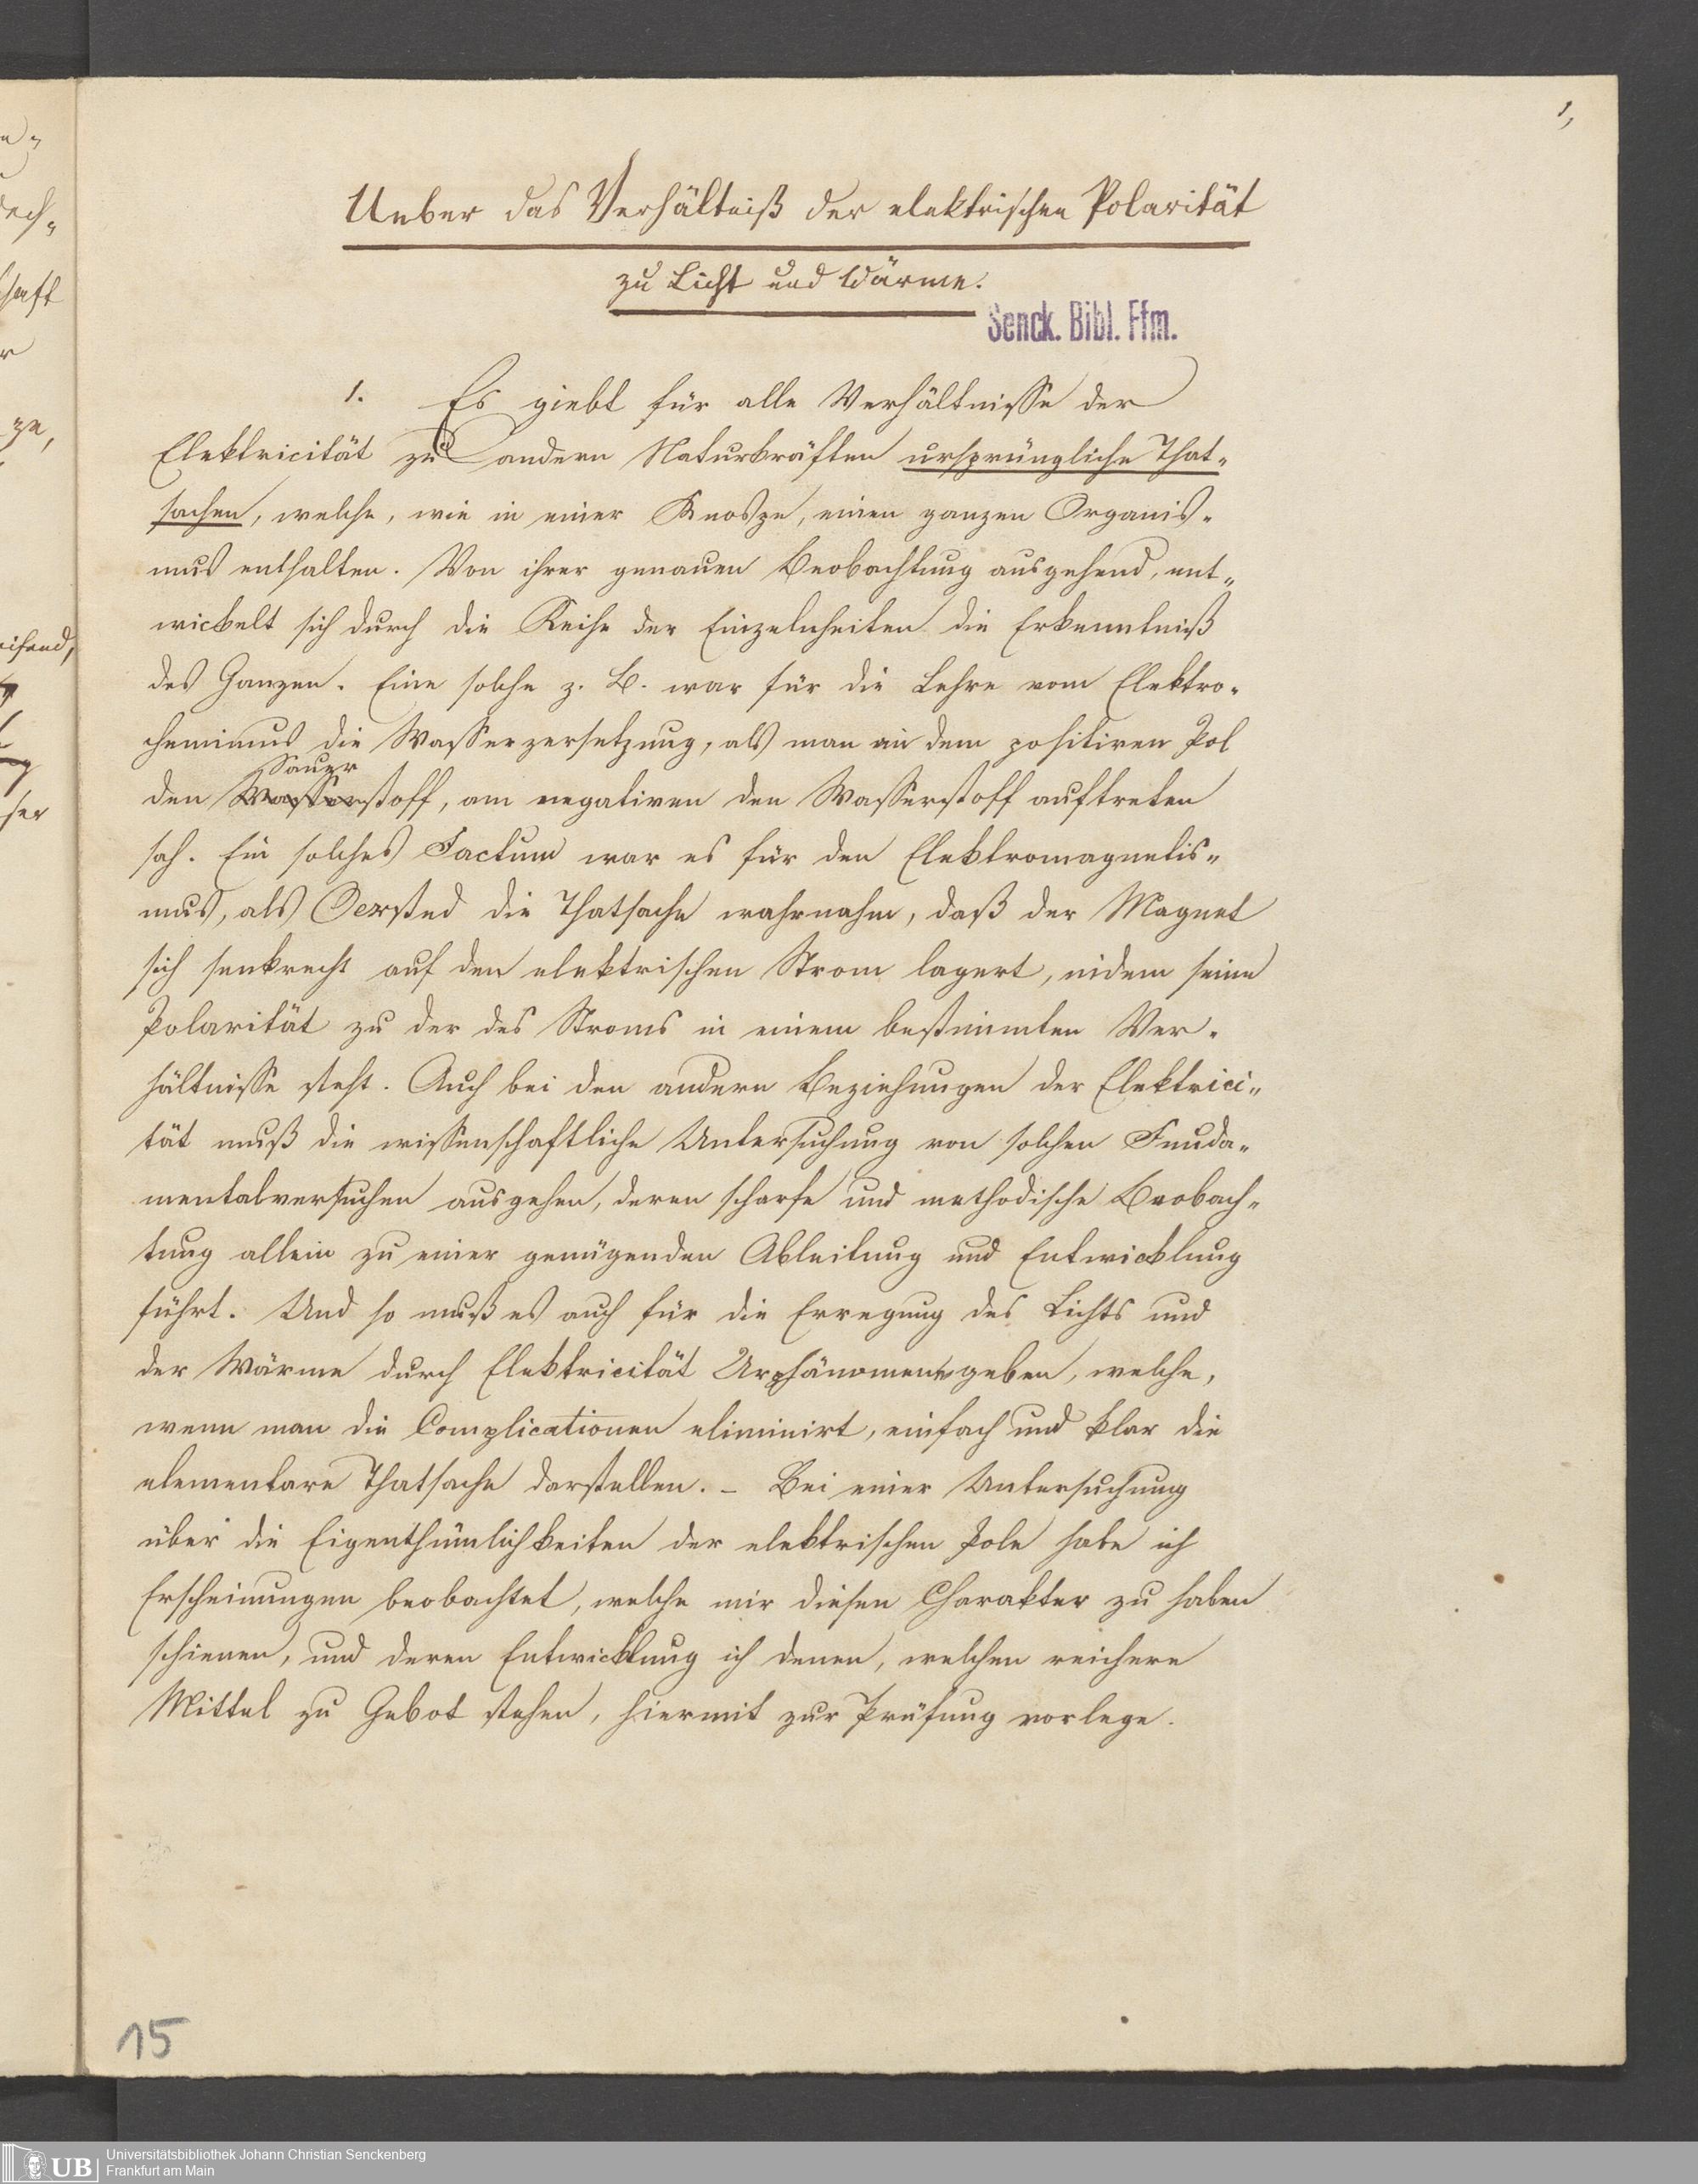 1,
Ueber das Verhältniß der elektrischen Polarität
zu Licht und Wärme.
Senck. Bibl. Ffm.
1. Es giebt für alle Verhältnisse der
Elektricität zu andern Naturkräften ursprüngliche That-
sachen, welche, wie in einer Knospe, einen ganzen Organis-
mus enthalten. Von ihrer genauen Beobachtung ausgehend, ent-
wickelt sich durch die Reihe der Einzelnheiten die Erkenntniß
des Ganzen. Eine solche z. B. war für die Lehre vom Elektro-
chemimus die Wasserzersetzung, als man an dem positiven Pol
Sauer
den Wasserstoff, am negativen den Wasserstoff auftreten
sah. Ein solches Factum war es für den Elektromagnetis-
mus, als Oersted die Thatsache wahrnahm, daß der Magnet
sich senkrecht auf den elektrischen Strom lagert, indem seine
Polarität zu der des Stroms in einem bestimmten Ver-
hältnisse steht. Auch bei den andern Beziehungen der Elektrici-
tät muß die wissenschaftliche Untersuchung von solchen Funda-
mentalversuchen ausgehen, deren scharfe und methodische Beobach-
tung allein zu einer genügenden Ableitung und Entwicklung
führt. Und so muß es auch für die Erregung des Lichts und
der Wärme durch Elektricität Urphänomene geben, welche,
wenn man die Complicationen eliminirt, einfach und klar die
elementare Thatsache darstellen. – Bei einer Untersuchung
über die Eigenthümlichkeiten der elektrischen Pole habe ich
Erscheinungen beobachtet, welche mir diesen Charakter zu haben
schienen, und deren Entwicklung ich denen, welchen reichere
Mittel zu Gebot stehen, hiermit zur Prüfung vorlege.
15
UB
Universitätsbibliothek Johann Christian Senckenberg
Frankfurt am Main